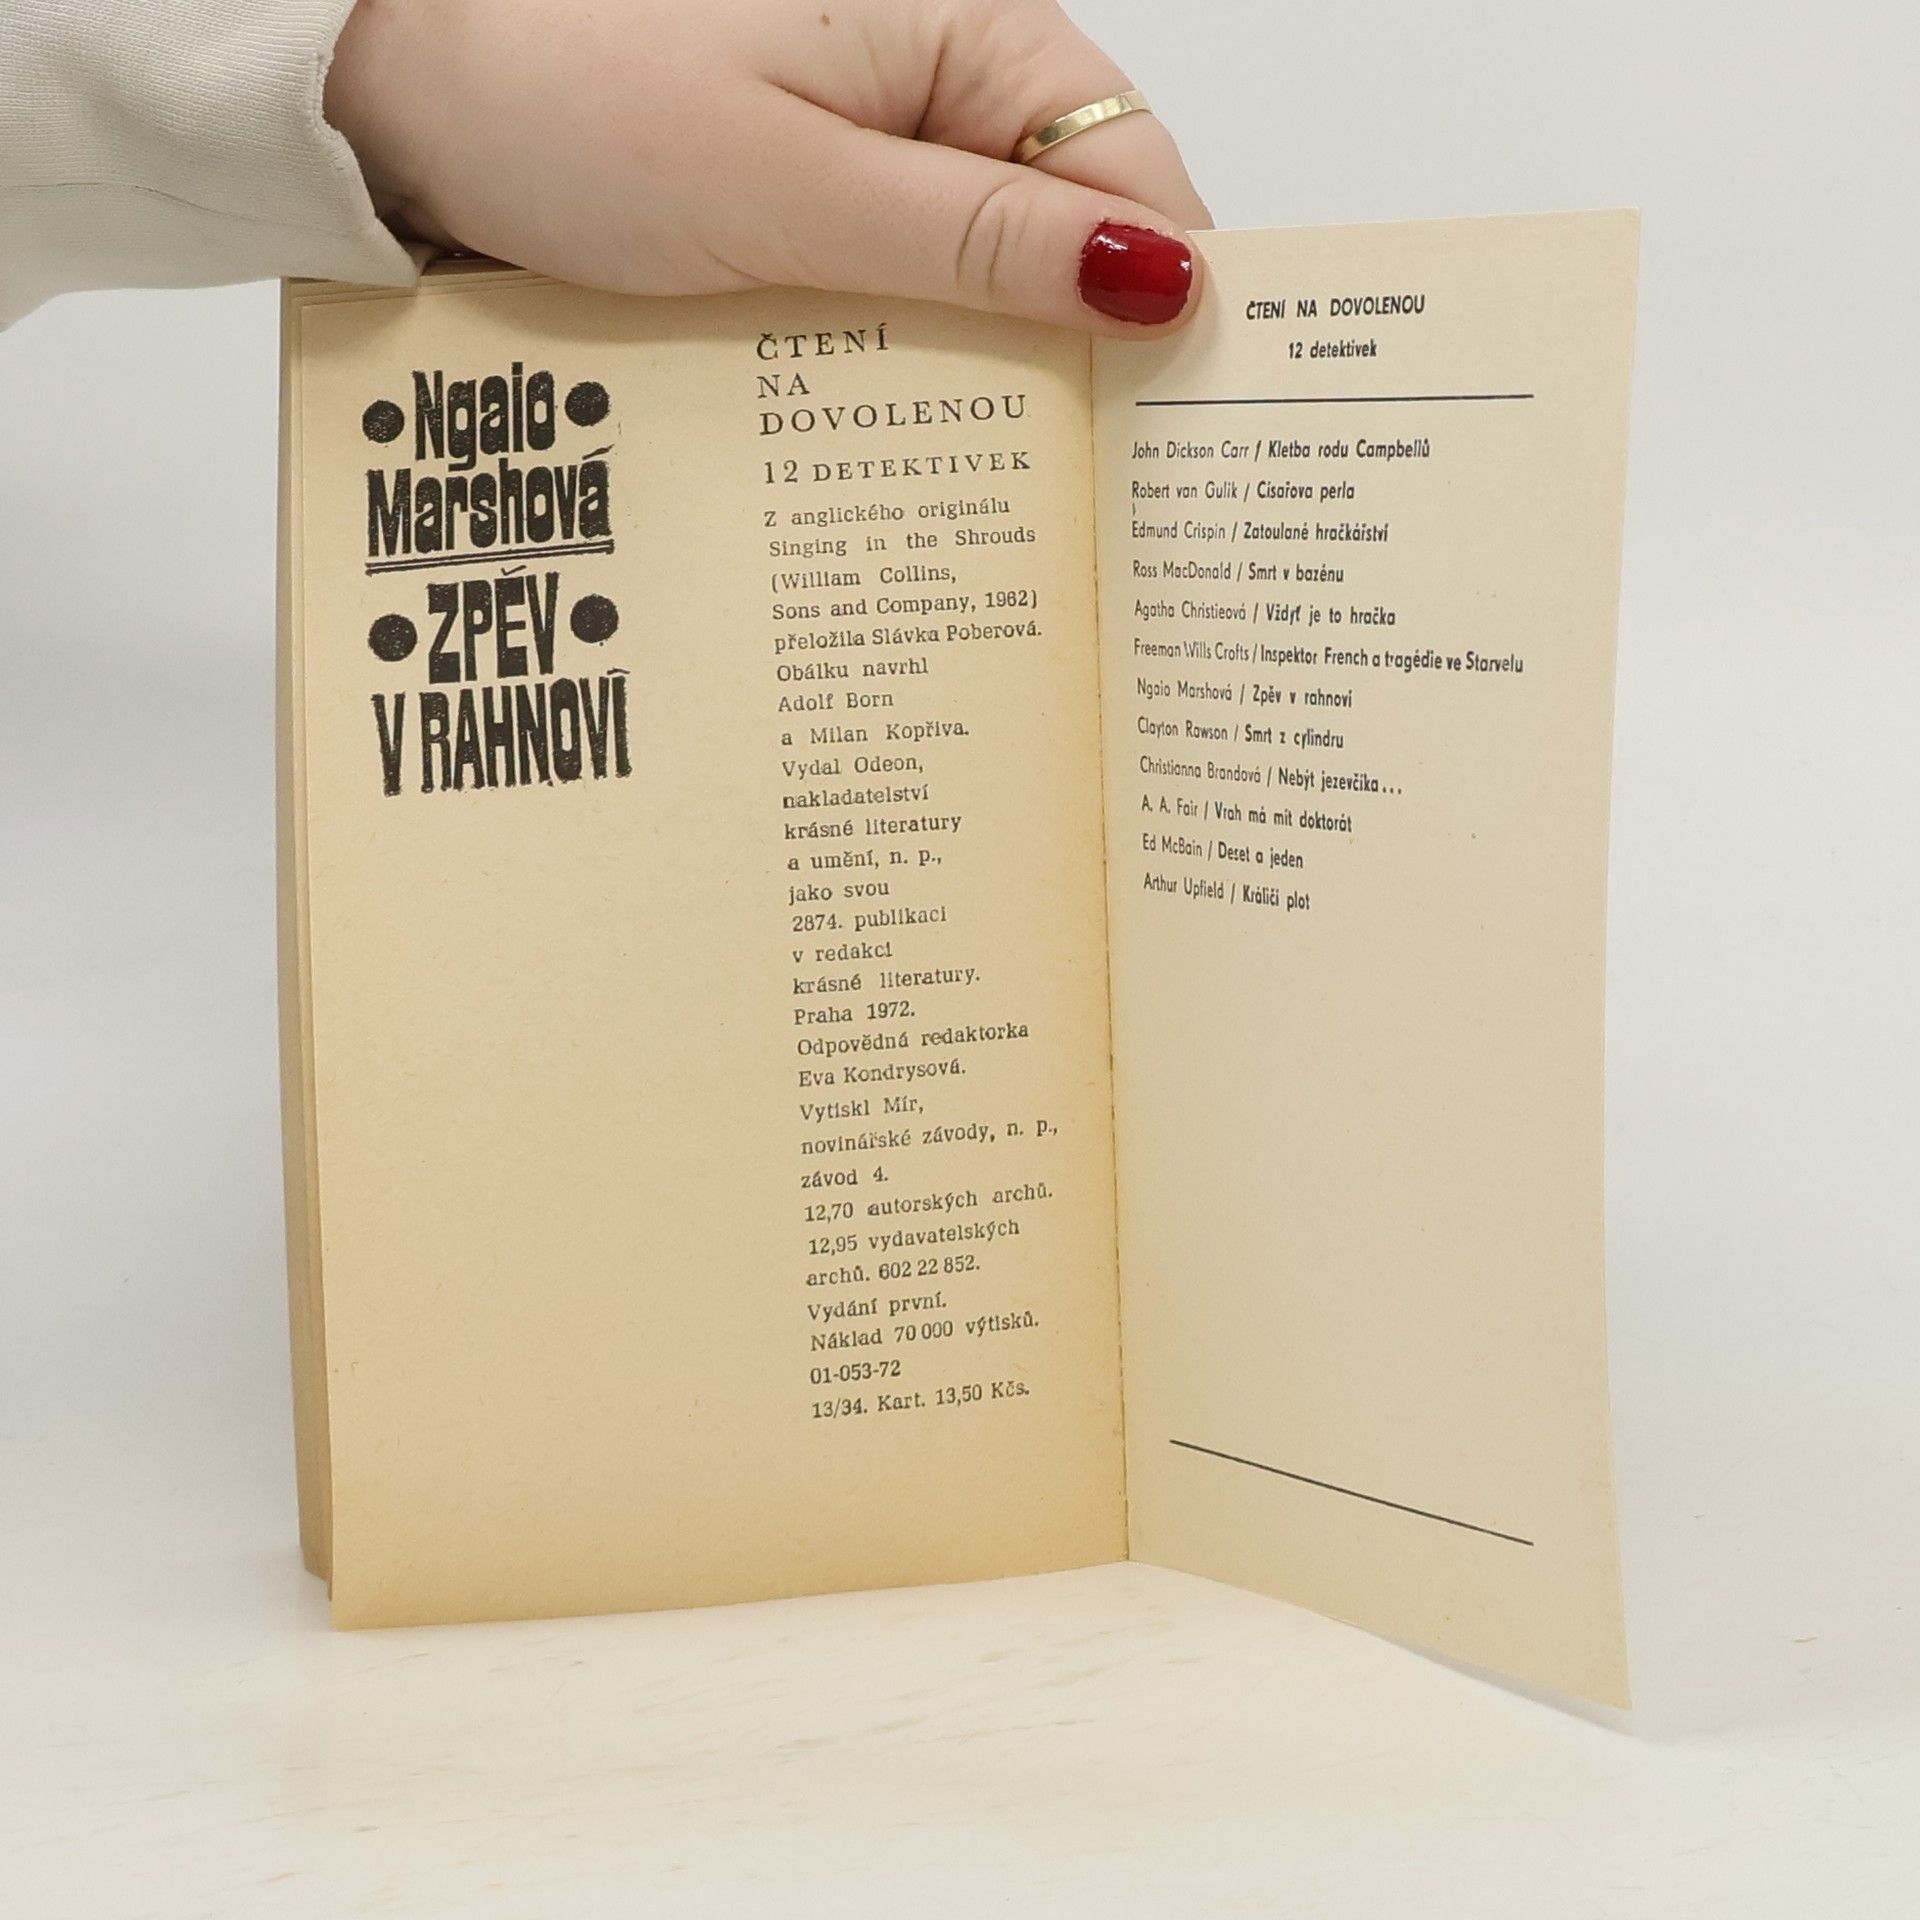 Ngaio
Marshová
ZPĚV
V RAHNOVÍ
ČTENÍ
NA
DOVOLENOU
12 DETEKTIVEK
Z anglického originálu
Singing in the Shrouds
(William Collins,
Sons and Company, 1962)
přeložila Slávka Poberová.
Obálku navrhl
Adolf Born
a Milan Kopřiva.
Vydal Odeon,
nakladatelství
krásné literatury
a umění, n. p.,
jako svou
2874. publikaci
v redakci
krásné literatury.
Praha 1972.
Odpovědná redaktorka
Eva Kondrysová.
Vytiskl Mír,
novinářské závody, n. p.,
závod 4.
12,70 autorských archů.
12,95 vydavatelských
archů. 602 22 852.
Vydání první.
Náklad 70 000 výtisků.
01-053-72
13/34. Kart. 13,50 Kčs.
ČTENÍ NA DOVOLENOU
12 detektivek
John Dickson Carr / Kletba rodu Campbellů
Robert van Gulik / Císařova perla
Edmund Crispin / Zatoulané hračkářství
Ross MacDonald / Smrt v bazénu
Agatha Christieová / Vždyť je to hračka
Freeman Wills Crofts / Inspektor French a tragédie ve Starvelu
Ngaio Marshová / Zpěv v rahnoví
Clayton Rawson / Smrt z cylindru
Christianna Brandová / Nebýt jezevčíka...
A. A. Fair / Vrah má mít doktorát
Ed McBain / Deset a jeden
Arthur Upfield / Králičí plot